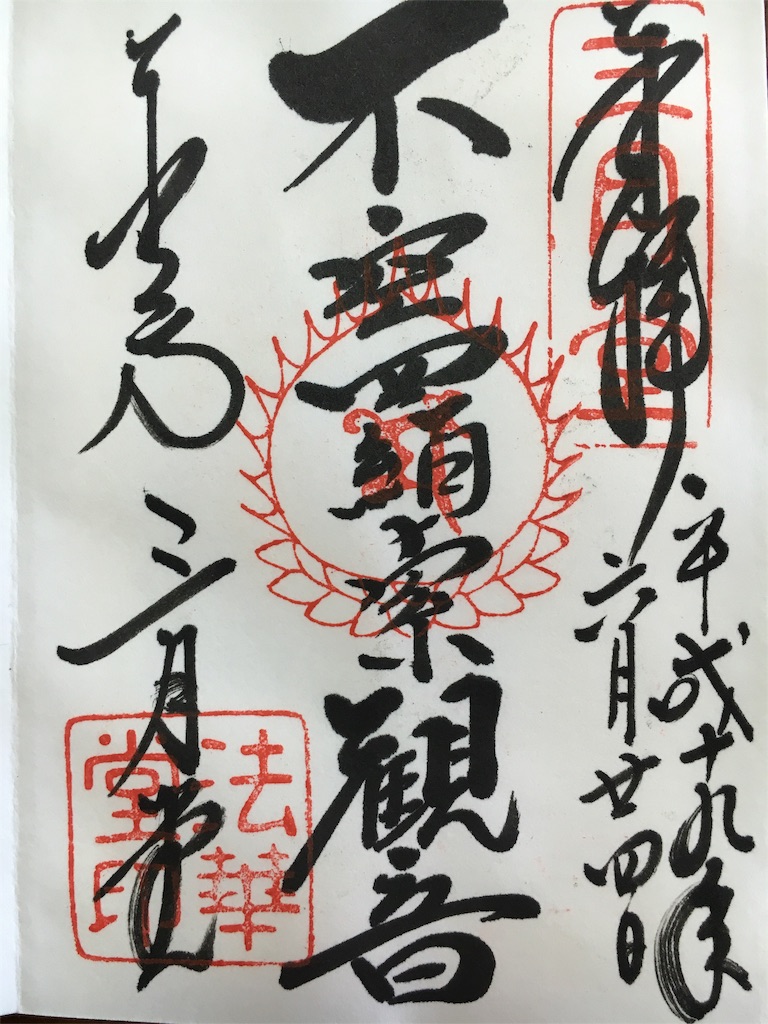 奉拝
三月堂
平成十九年
六月廿四日
不空羂索観音
東大寺 三月堂
法華
堂印